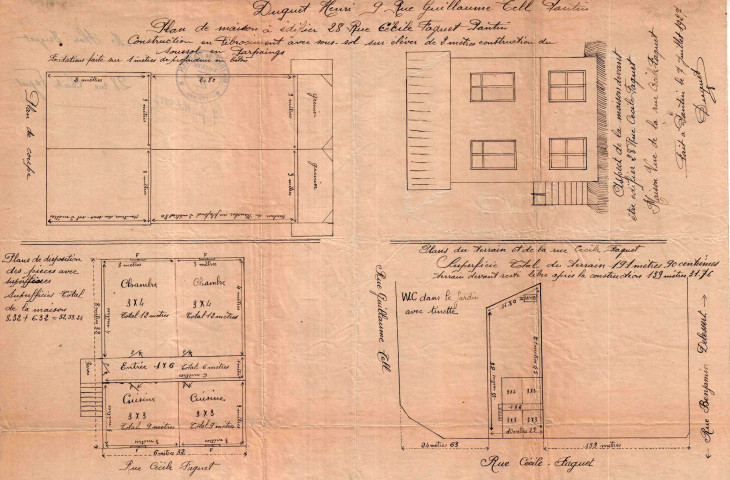 Duquet Henri 9 Rue Guillaume Tell Pantin
Plan de maison à édifier 28 Rue Cécile Faguet Pantin
Construction en fibrociment avec sous-sol surélever de 2 mètres construction du
soussol en Parpaings
Fondations faite sur 1 mètres de profondeur en béton
Plan de coupe
2 mètres
3 mètres
3 mètres
3 mètres
3 mètres
grenier
grenier
Aspect de la maison devant
être édifier 28 Rue Cécile Faguet
Maison Vue de la rue Cécile Faguet
Fait à Pantin le 9 Juillet
Duquet
Plans de disposition
des pièces avec
superficies
Superficies Total
de la maison
8.32 + 6.32 =
8 mètres 32
3 mètres
3 mètres
Chambre
3 X 4
Total 12 mètres
Chambre
3 X 4
Total 12 mètres
Entrée 1 X 6 Total 6 mètres
6 mètres
Cuisine
3 X 3
Total 9 mètres
Cuisine
3 X 3
Total 9 mètres
6 mètres 32
Rue Cécile Faguet
Plans du terrain et de la rue Cécile Faguet
Superficie Total du terrain 191 mètres 90 centièmes
terrain devant resté libre après la construction 139 mètres 31.76
Rue Guillaume Tell
WC dans le Jardin
avec tinette
3X4
3X4
1X6
3X3
3X3
24 mètres 63
139 mètres
Rue Cécile - Faguet
Rue Benjamin Delessert